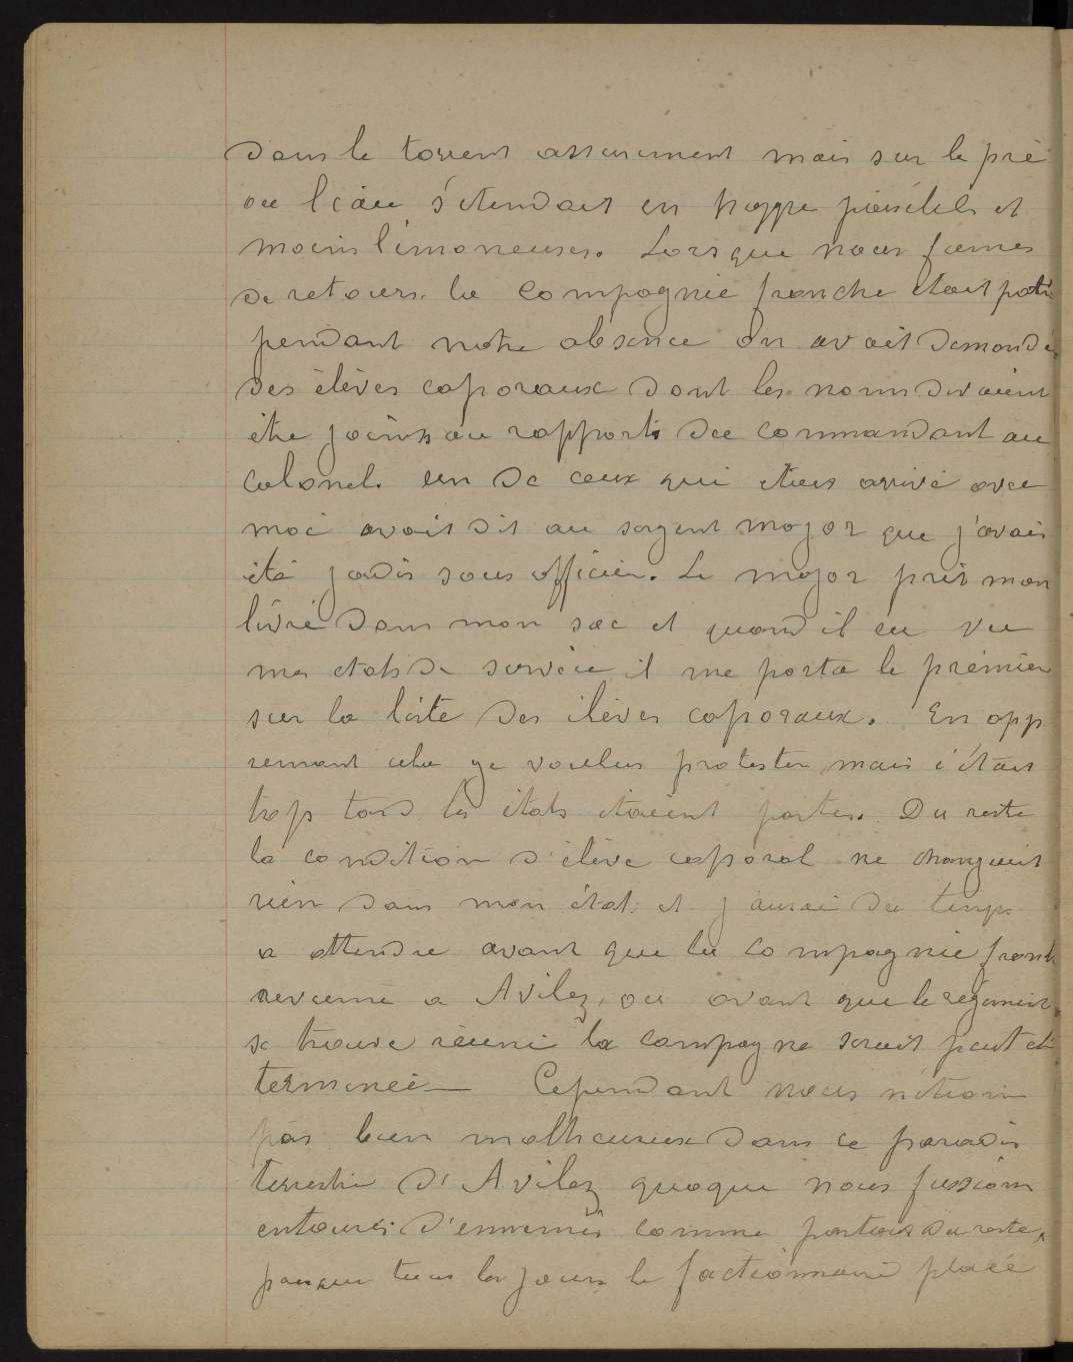 dans le torrent assurement mais sur le pré
ou l'eau s'étendait en nappe paisibles et
moins limoneuses. Lorsque nous fumes
de retours. la Compagnie franche étoit parti
pendant notre absence On avait demondé
des élèves caporaux dont les noms devaient
être joints au rapports du commandant au
colonel. un de ceux qui étais arrivé avec
moi avait dit au sergent major que j'avais
été jadis sous officier. Le major prit mon
livré dans mon sac et quand il eu vu
mes etats de service il me porta le prémier
sur la liste des élèves caporaux. En app
renant cela ye voulus protester mais c'étais
trop tard les états étaient portes. Du reste
la condition d'élève caporal ne changeait
rien dans mon état et j'aurai du temps
a attendre avant que la compagnie franch
revienne a Avilez, ou avant que le régiment
se trouve réuni la campagne serait peut etr
terminée — Cependant nous nétions
pas bien malheureux dans ce paradis
terrestre d'Avilez quoque nous fussions
entourés d'ennemis comme partout du reste,
parque tous les jours le factionnaire placé